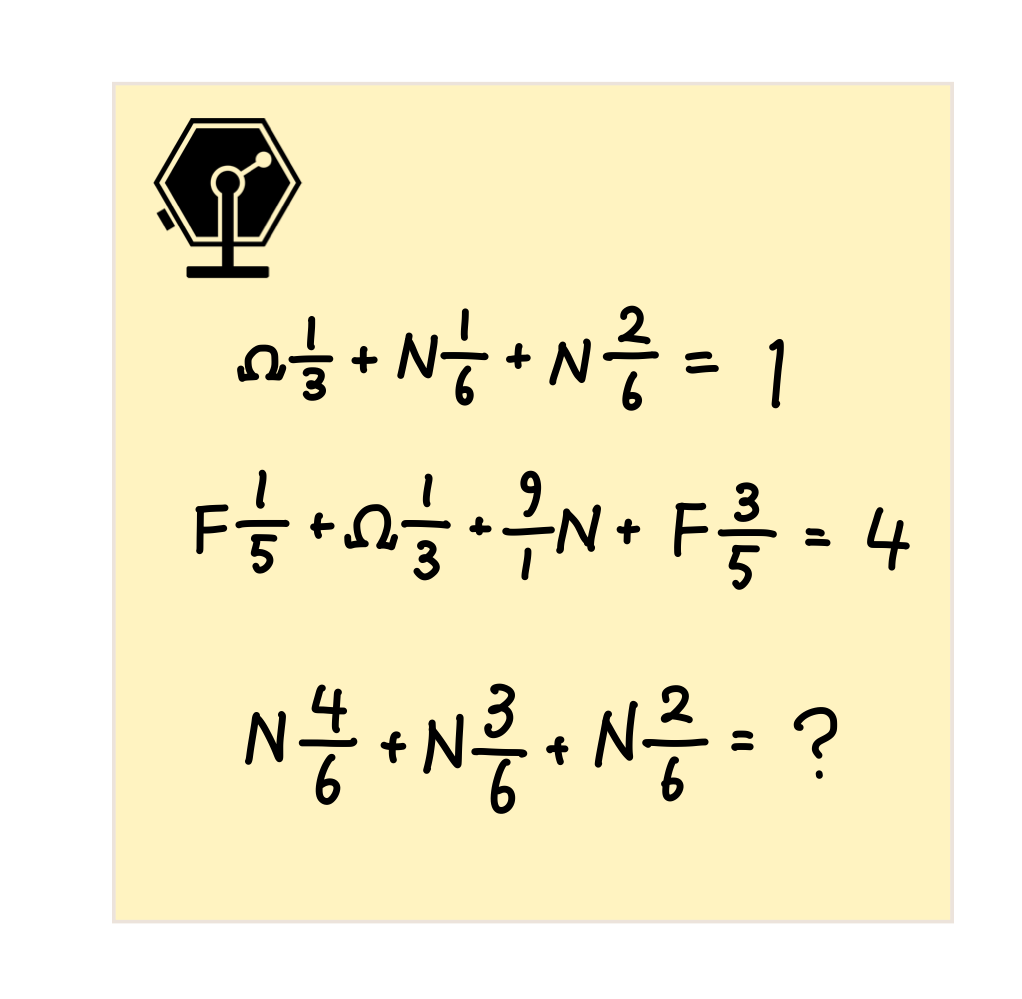 Ω 1/3 + N 1/6 + N 2/6 = 1
F 1/5 + Ω 1/3 + 9/1 N + F 3/5 = 4
N 4/6 + N 3/6 + N 2/6 = ?